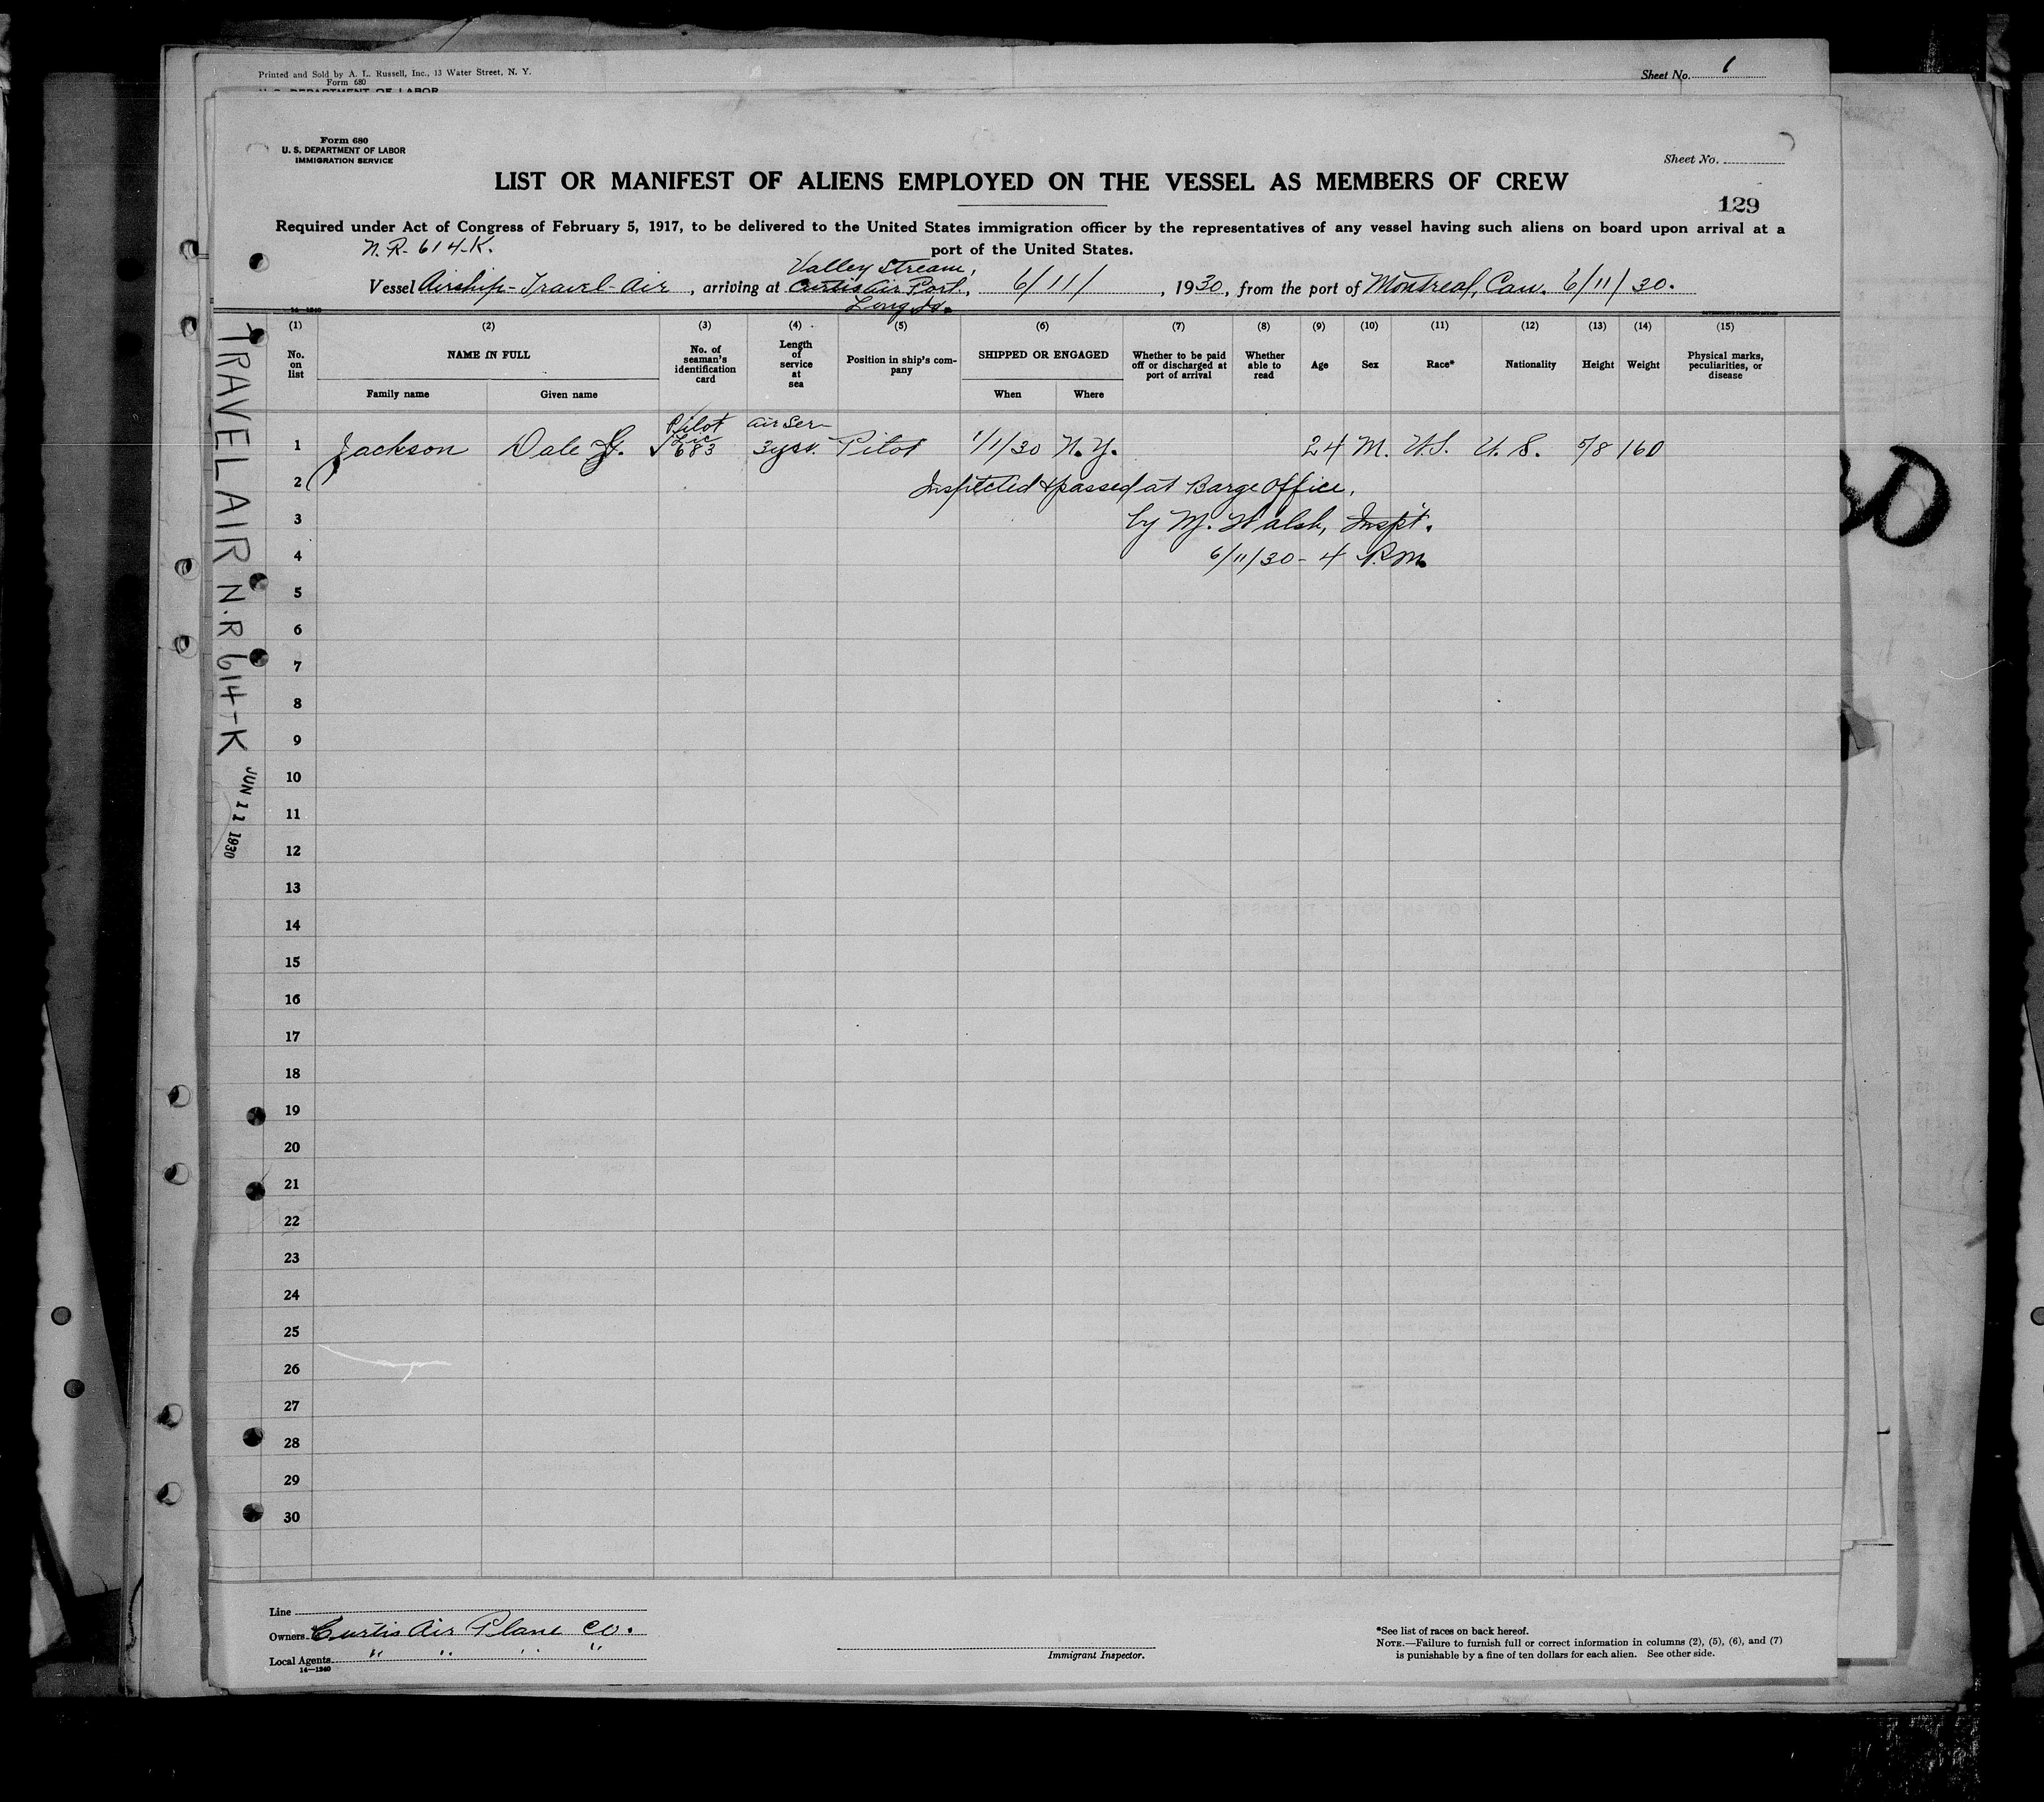 Printed and Sold by A. L. Russell, Inc., 13 Water Street, N. Y.
Form 680
U. S. DEPARTMENT OF LABOR
Sheet No. 1
Form 680
U. S. DEPARTMENT OF LABOR
IMMIGRATION SERVICE
Sheet No.
LIST OR MANIFEST OF ALIENS EMPLOYED ON THE VESSEL AS MEMBERS OF CREW
129
Required under Act of Congress of February 5, 1917, to be delivered to the United States immigration officer by the representatives of any vessel having such aliens on board upon arrival at a
port of the United States.
N.R-614-K.
Valley Stream,
Vessel Airship-Travel-Air, arriving at Curtis Air Port, 6/11/, 1930, from the port of Montreal, Can. 6/11/30.
Long Is.
14-1240
(1) (2) (3) (4) (5) (6) (7) (8) (9) (10) (11) (12) (13) (14) (15)
No. on list
NAME IN FULL
Family name
Given name
No. of seaman's identification card
Length of service at sea
Position in ship's com-pany
SHIPPED OR ENGAGED
When
Where
Whether to be paid off or discharged at port of arrival
Whether able to read
Age
Sex
Race*
Nationality
Height
Weight
Physical marks, peculiarities, or disease
Pilot Air Ser-
Lic
1 Jackson Dale G. 683 3yrs. Pilot 1/1/30 N.Y. 24 M. U.S. U.S. 5/8 160
2 Inspected & passed at Barge Office,
3 by M. Walsh, Inspt.
4 6/11/30-4 P.M.
5
6
7
8
9
10
11
12
13
14
15
16
17
18
19
20
21
22
23
24
25
26
27
28
29
30
TRAVEL AIR N.R 614-K
JUN 11 1930
Line
Owners Curtis Air Plane Co.
Local Agents " " " "
14-1240
Immigrant Inspector.
*See list of races on back hereof.
NOTE.—Failure to furnish full or correct information in columns (2), (5), (6), and (7)
is punishable by a fine of ten dollars for each alien. See other side.